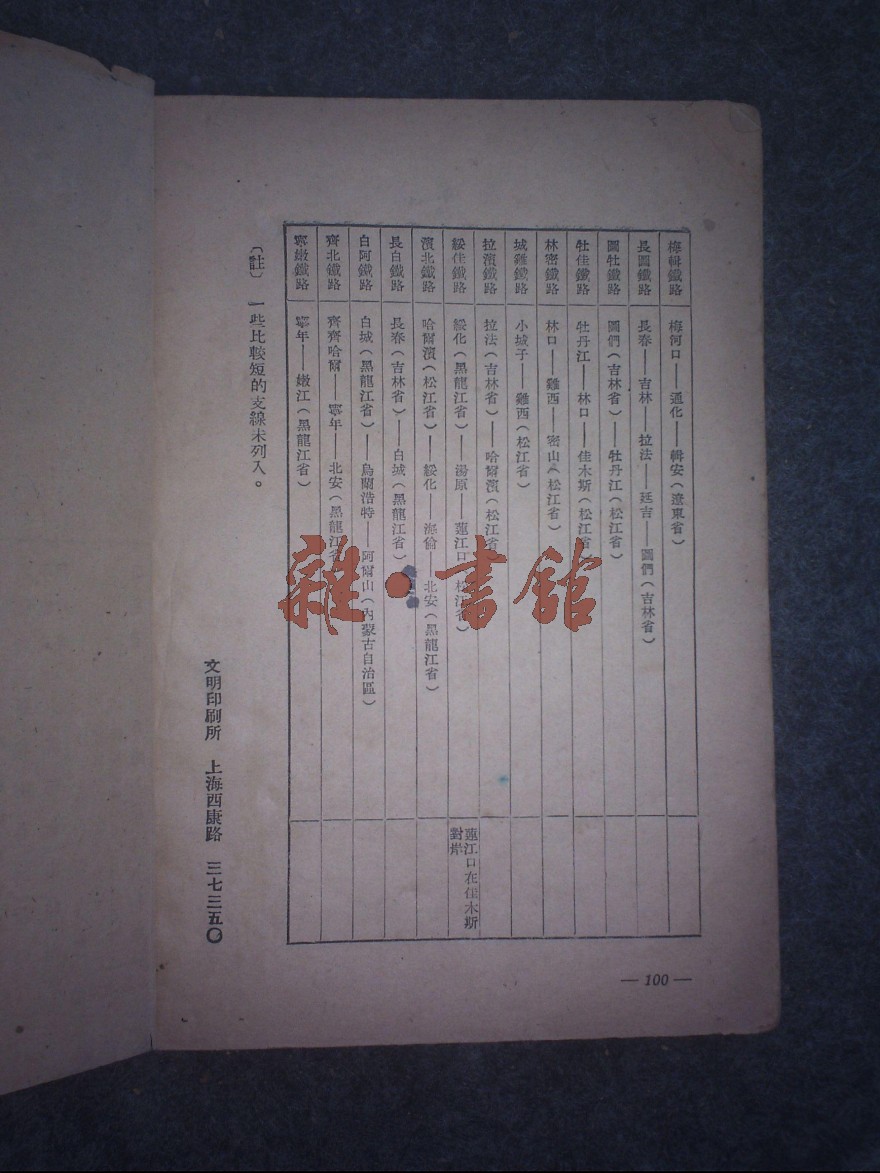 梅輯鐵路 梅河口——通化——輯安(遼東省)
長圖鐵路 長春——吉林——拉法——延吉——圖們(吉林省)
圖牡鐵路 圖們(吉林省)——牡丹江(松江省)
牡佳鐵路 牡丹江——林口——佳木斯(松江省)
林密鐵路 林口——雞西——密山(松江省)
城雞鐵路 小城子——雞西(松江省)
拉濱鐵路 拉法(吉林省)——哈爾濱(松江省)
綏佳鐵路 綏化(黑龍江省)——湯原——蓮江口(松江省) 蓮江口在佳木斯對岸
濱北鐵路 哈爾濱(松江省)——綏化——海倫——北安(黑龍江省)
長白鐵路 長春(吉林省)——白城(黑龍江省)
白阿鐵路 白城(黑龍江省)——烏蘭浩特——阿爾山(內蒙古自治區)
齊北鐵路 齊齊哈爾——寧年——北安(黑龍江省)
寧嫩鐵路 寧年——嫩江(黑龍江省)
〔註〕 一些比較短的支線未列入。
文明印刷所 上海西康路 三七三五〇
— 100 —
雜·書館